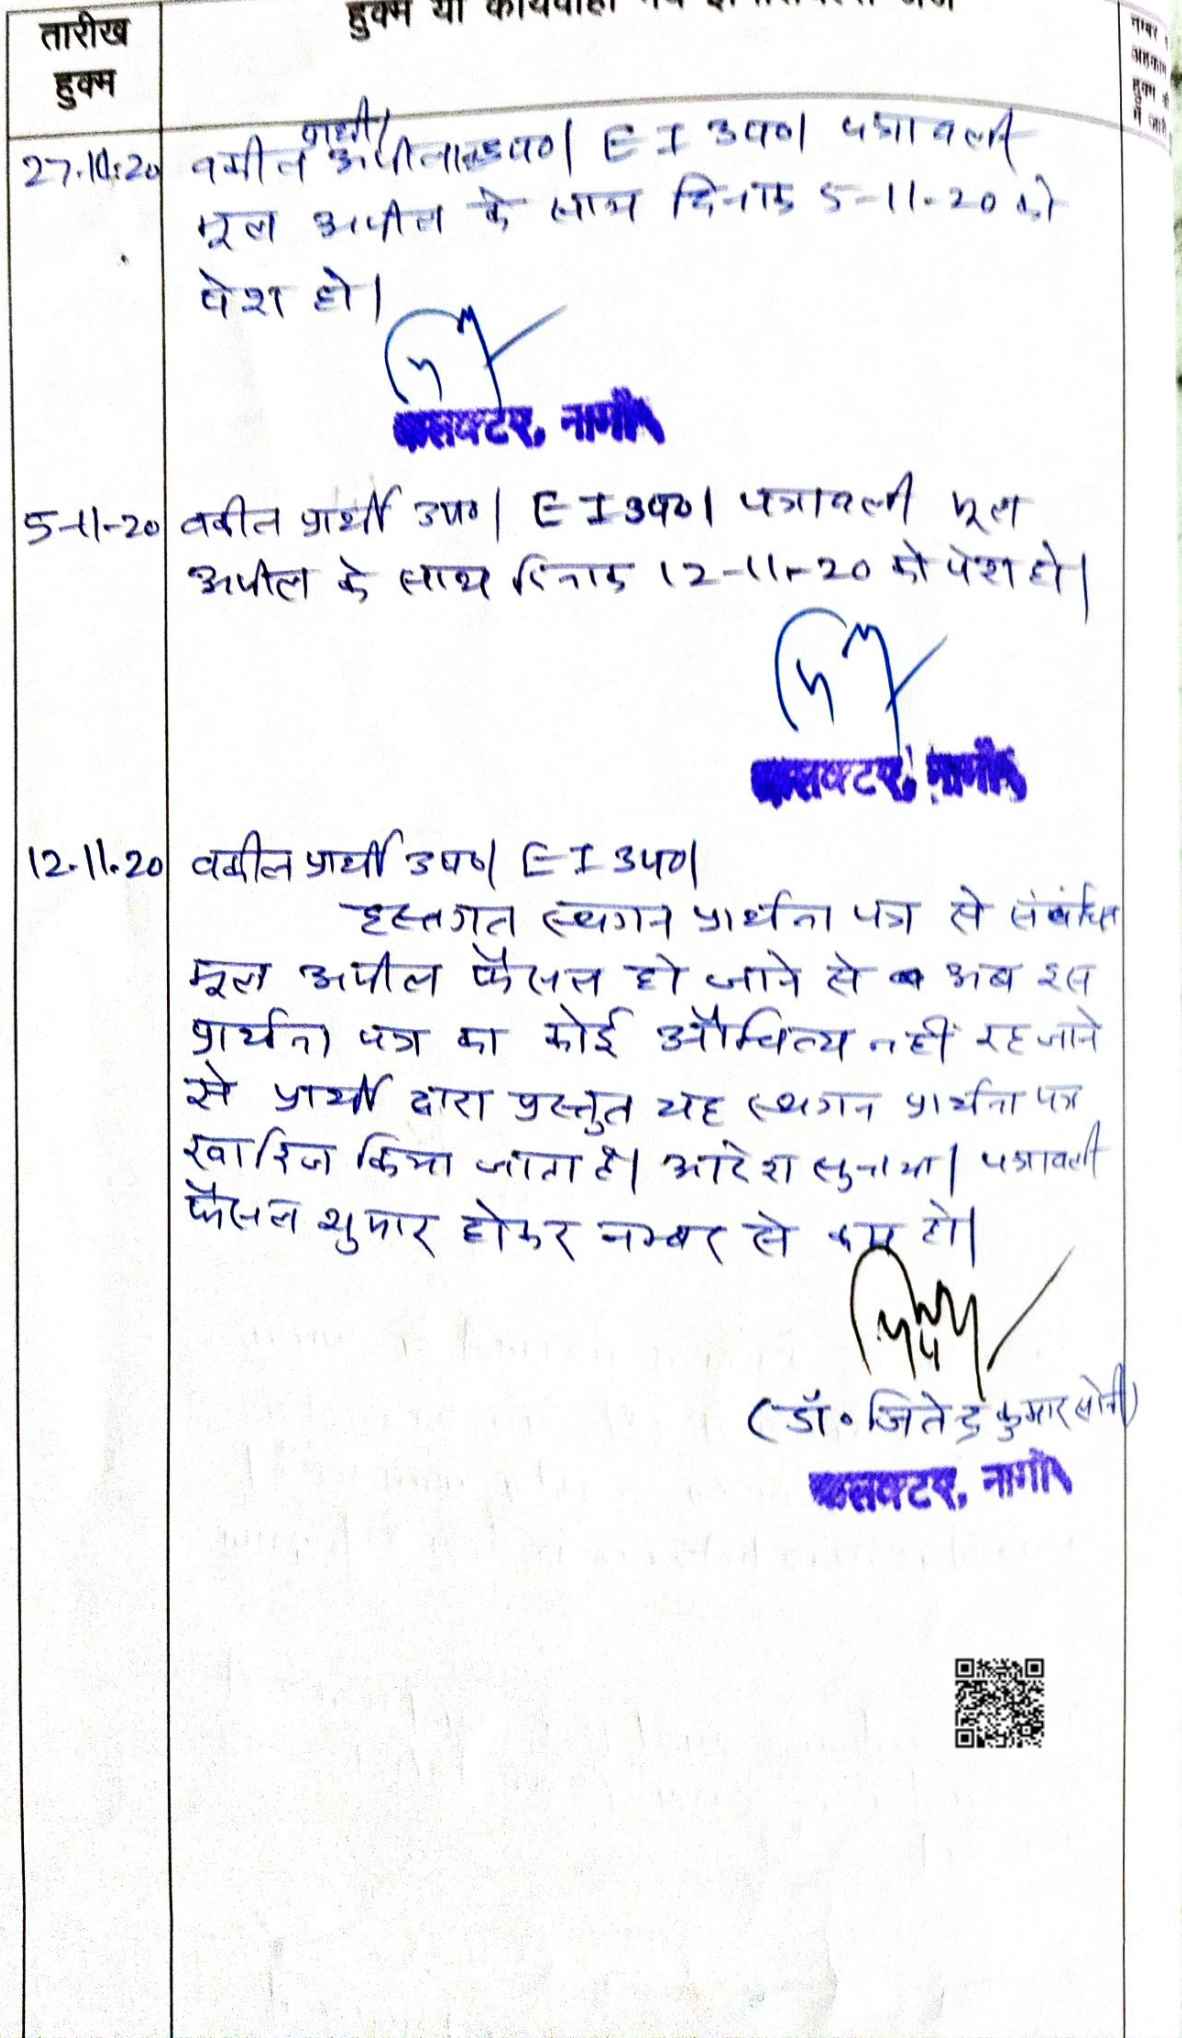 तारीख
हुक्म
हुक्म या कार्यवाही
नम्बर
अहकाम
हुक्म
में जारी
27.10.20 वकील प्रार्थी/ उप०। E I उप०। पत्रावली
मूल अपील के साथ दिनांक 5-11-20 को
पेश हो।
कलक्टर, नागौर
5-11-20 वकील प्रार्थी उप०। E I उप०। पत्रावली मूल
अपील के साथ दिनांक 12-11-20 को पेश हो।
कलक्टर, नागौर
12.11.20 वकील प्रार्थी उप०। E I उप०।
हस्तगत स्थगन प्रार्थना पत्र से संबंधित
मूल अपील फैसल हो जाने से अब इस
प्रार्थना पत्र का कोई औचित्य नहीं रह जाने
से प्रार्थी द्वारा प्रस्तुत यह स्थगन प्रार्थना पत्र
खारिज किया जाता है। आदेश सुनाया। पत्रावली
फैसल शुमार होकर नम्बर से कम हो।
(डॉ० जितेन्द्र कुमार सोनी)
कलक्टर, नागौर